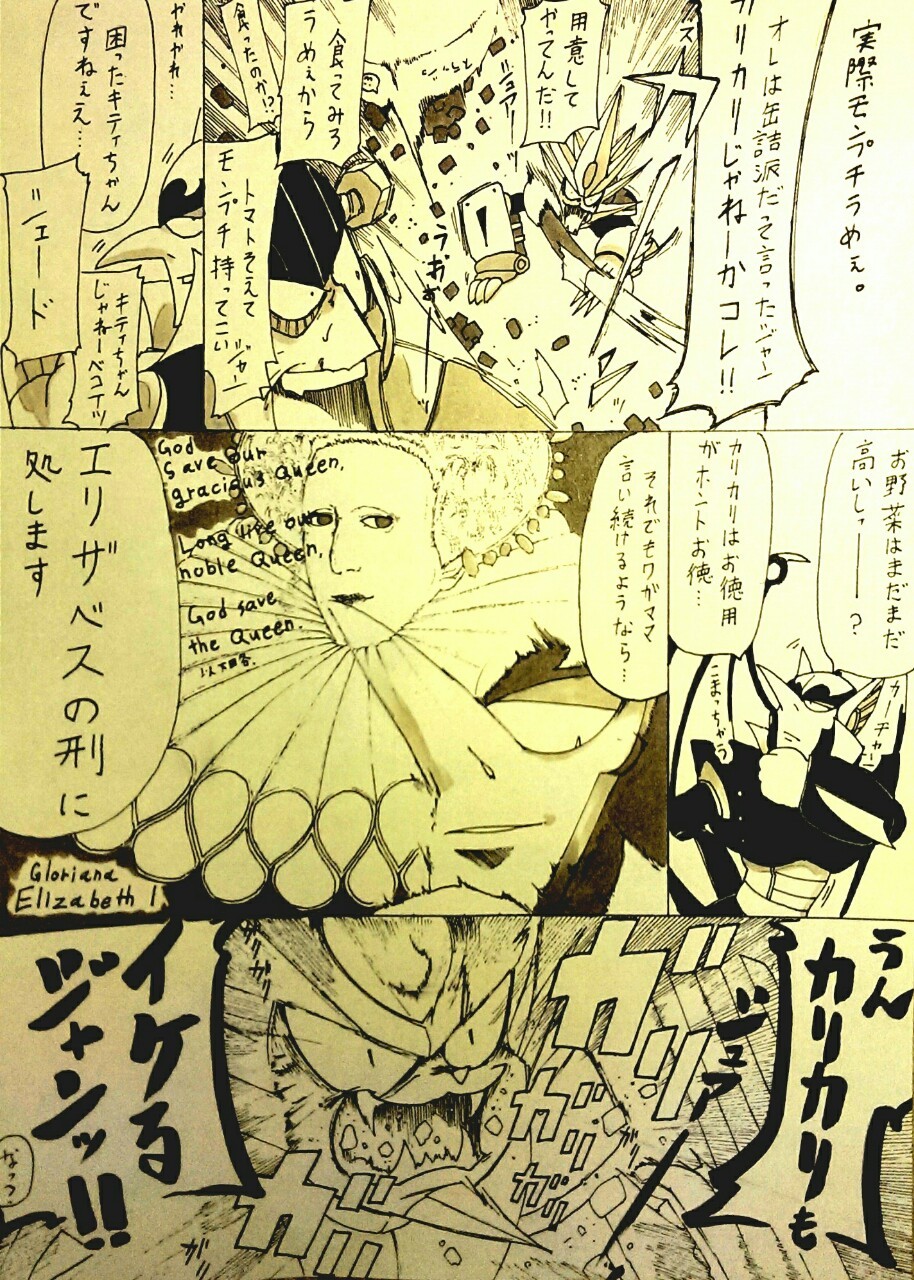 実際モンプチうめぇ。
オレは缶詰派だって言ったジャン
カリカリじゃねーかコレ!!
用意して
やってんだ!!
ジュアー
うおす
食ってみろ
うめぇから
食ったのか!?
トマトそえて
モンプチ持ってこい
ジャン
かれかれ…
困ったキティちゃん
ですねぇえ…
キティちゃん
じゃねーべコイツ
ジェード
お野菜はまだまだ
高いしっー?
カーチャン
カリカリはお徳用
がホントお徳…
こまっちゃう
それでもワガママ
言い続けるようなら…
God
save our
gracious Queen,
Long live our
noble Queen,
God save
the Queen.
以下略答.
エリザベスの刑に
処します
Gloriana
Elizabeth I
うん
カリカリも
ジュアー
ガリ
ガリ
ガリ
ガリ
イケる
ジャンッ!!
なっつ